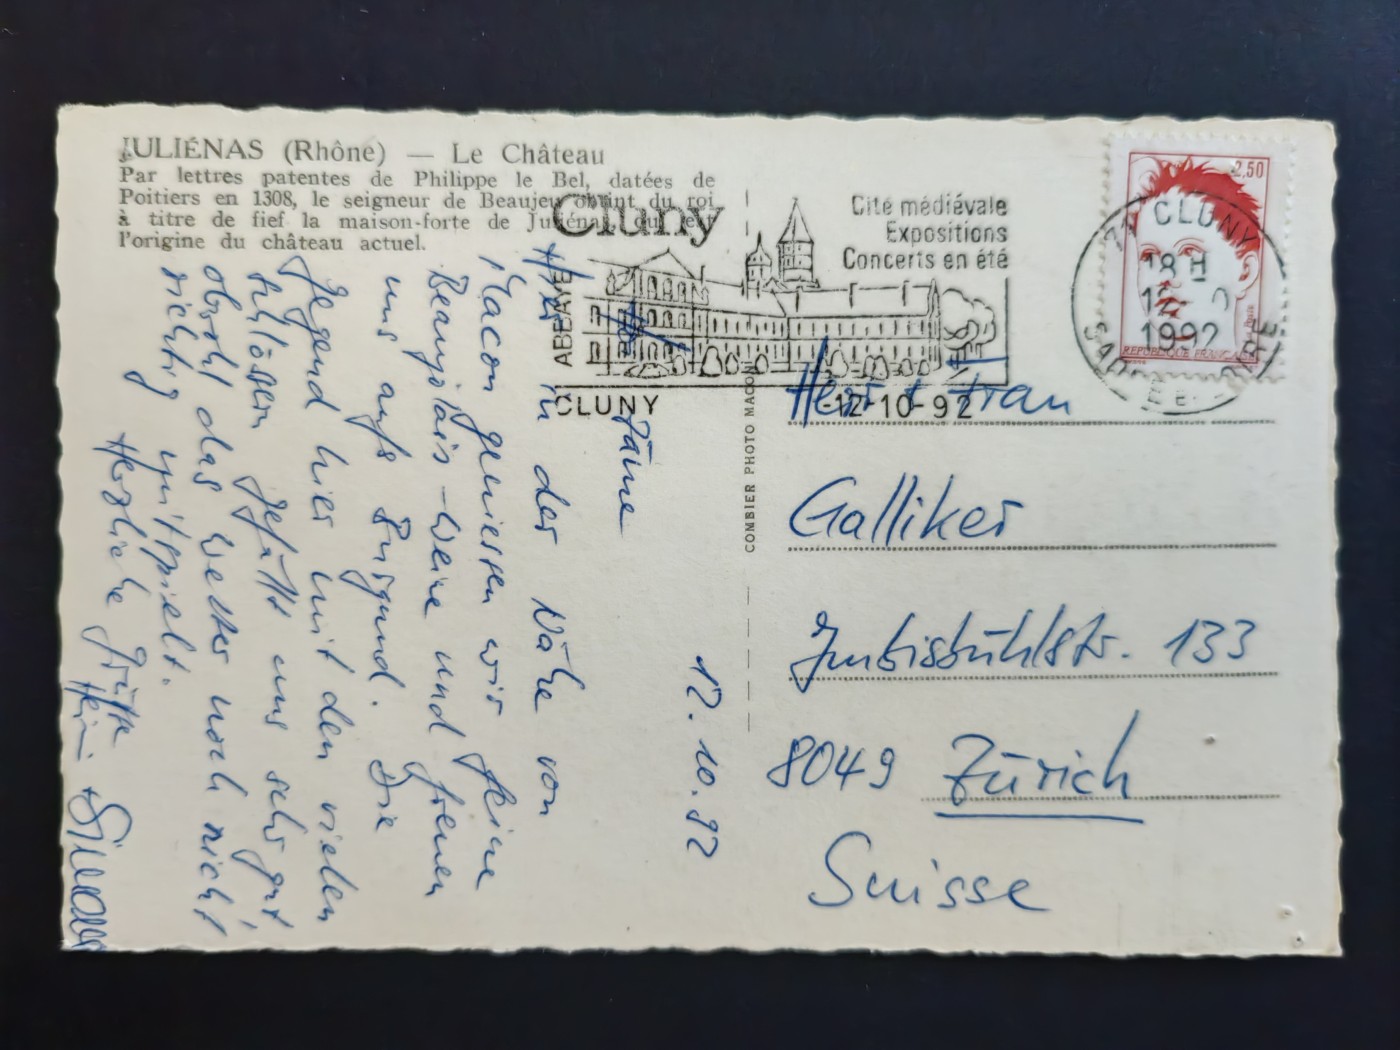 JULIÉNAS (Rhône) — Le Château
Par lettres patentes de Philippe le Bel, datées de
Poitiers en 1308, le seigneur de Beaujeu obtint du roi
à titre de fief la maison-forte de Juliénas
l'origine du château actuel.
Cluny
ABBAYE
CLUNY
Cité médiévale
Expositions
Concerts en été
-12-10-92
71 CLUNY
18 H
12
1992
SAONE ET LOIRE
2,50
REPUBLIQUE FRANÇAISE
COMBIER PHOTO MACON
12.10.92
Hier in der Nähe von
Macon geniessen wir feine
Beaujolais-Weine und freuen
uns aufs Burgund. Die
Gegend hier mit den vielen
Schlössern gefällt uns sehr gut
obwohl das Wetter noch nicht
richtig mitspielt.
Herzliche Grüsse
Herr + Frau
Galliker
Imbisbühlstr. 133
8049 Zürich
Suisse